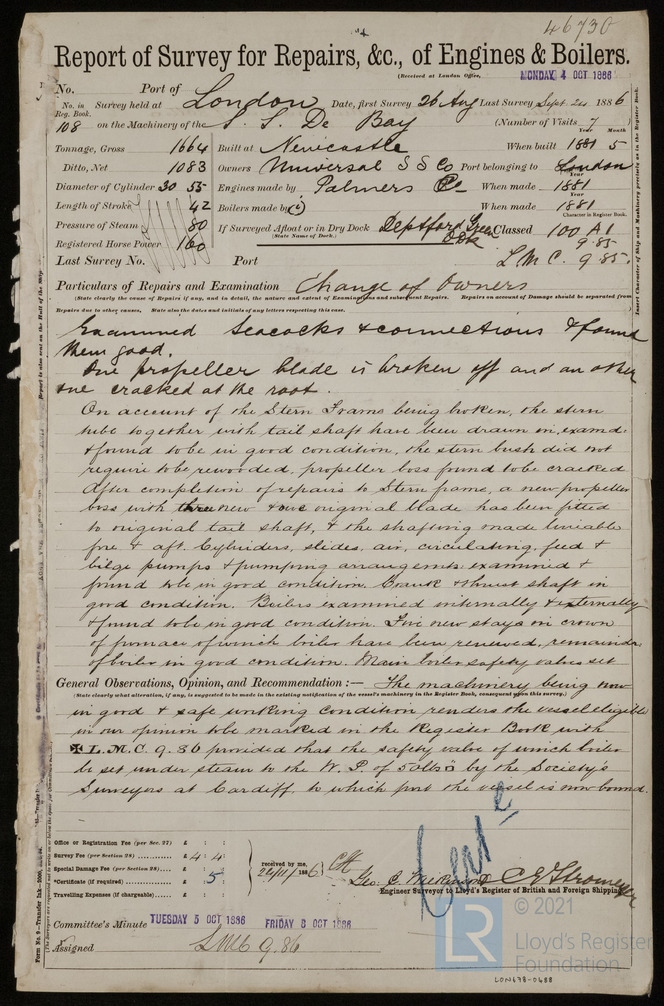 46730
Report of Survey for Repairs, &c., of Engines & Boilers.
(Received at London Office, MONDAY 4 OCT 1886
No. Port of
No. in Reg. Book. Survey held at London Date, first Survey 26 Aug Last Survey Sept. 24 1886
108 on the Machinery of the S. S. De Bay (Number of Visits 7
Year Month
Tonnage, Gross 1664 Built at Newcastle When built 1881 5
Ditto, Net 1083 Owners Universal S S Co Port belonging to London
Year
Diameter of Cylinder 30 55 Engines made by Palmers Co When made 1881
Year
Length of Stroke 42 Boilers made by When made 1881
Pressure of Steam 80 If Surveyed Afloat or in Dry Dock Deptford Green D Dk Classed 100 A1
(State Name of Dock.) Character in Register Book.
9.85
Registered Horse Power 160
Last Survey No. Port L M C. 9.85.
Insert Character of Ship and Machinery precisely as in the Register Book.
Particulars of Repairs and Examination Change of Owners
(State clearly the cause of Repairs if any, and in detail, the nature and extent of Examinations and subsequent Repairs. Repairs on account of Damage should be separated from
Repairs due to other causes, State also the dates and initials of any letters respecting this case.
Examined Seacocks & connections & found
them good.
One propeller blade is broken off and an other
one cracked at the root.
On account of the Stern Frame being broken, the stern
tube together with tail shaft have been drawn in, examd.
& found to be in good condition, the stern bush did not
require to be rewooded, propeller boss found to be cracked
After completion of repairs to Stern frame, a new propeller
boss with three new & one original blade has been fitted
to original tail shaft, & the shafting made lineable
fore & aft. Cylinders, slides, air, circulating, feed &
bilge pumps & pumping arrangements examined &
found to be in good condition. Crank & thrust shaft in
good condition. Boilers examined internally & externally
& found to be in good condition. Five new stays on crown
of furnace of winch boiler have been renewed, remainder
of boiler in good condition. Main boiler safety valves set
General Observations, Opinion, and Recommendation :— The machinery being now
(State clearly what alteration, if any, is suggested to be made in the existing notification of the vessel's machinery in the Register Book, consequent upon this survey.)
in good & safe working condition renders the vessel eligible
in our opinion to be marked in the Register Book with
✠ L.M.C. 9.86 provided that the safety valve of winch boiler
be set under steam to the W. P. of 50lbs by the Society's
Surveyors at Cardiff, to which port the vessel is now bound.
Office or Registration Fee (per Sec. 27) £ : :
Survey Fee (per Section 28) £ 4 : 4 :
Special Damage Fee (per Section 28) £ : :
*Certificate (if required) £ : 5
Travelling Expenses (if chargeable) £ : :
received by me,
1886
Engineer Surveyor to Lloyd's Register of British and Foreign Shipping.
Committee's Minute TUESDAY 5 OCT 1886 FRIDAY 8 OCT 1886
Assigned L M C 9.86
Form No. 9—Transfer Ink—2000
© 2021
LR
Lloyd's Register
Foundation
LON678-0688